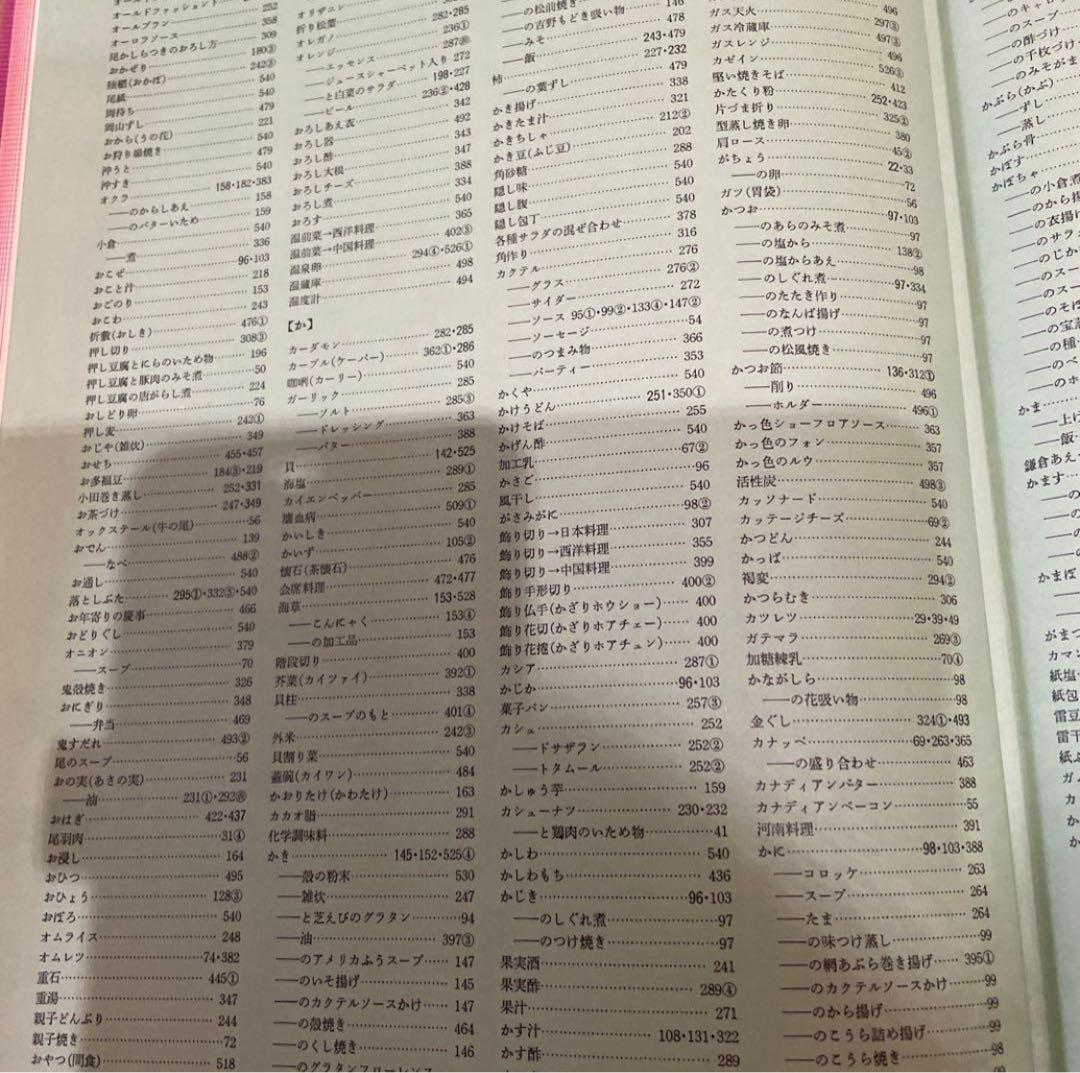 オールドファッショント
オールブラン 252
オーロラソース 358
尾かしらつきのおろし方 309
おかぜり 180③
陸稲(おかぼ) 242③
尾紙 540
岡持ち 540
岡山ずし 479
おから(うの花) 221
お狩り場焼き 540
沖うと 479
沖すき 540
オクラ 158・182・383
——のからしあえ 158
——のバターいため 159
小倉 540
——煮 336
おこぜ 96・103
おこと汁 218
おごのり 153
おこわ 243
折敷(おしき) 476①
押し切り 308③
押し豆腐とにらのいため物 196
押し豆腐と豚肉のみそ煮 50
押し豆腐の唐がらし煮 224
おしどり卵 76
押し麦 242①
おじや(雑炊) 349
おせち 455・457
お多福豆 184③・219
小田巻き蒸し 252・331
お茶づけ 247・349
オックステール(牛の尾) 56
おでん 139
——なべ 488②
お通し 540
落としぶた 295①・332③・540
お年寄りの慶事 466
おどりぐし 540
オニオン 379
——スープ 70
鬼殻焼き 326
おにぎり 348
——弁当 469
鬼すだれ 493②
尾のスープ 56
おの実(あさの実) 231
——油 231①・292㊟
おはぎ 422・437
尾羽肉 31④
お浸し 164
おひつ 495
おひょう 128③
おぼろ 540
オムライス 248
オムレツ 74・382
重石 445①
重湯 347
親子どんぶり 244
親子焼き 72
おやつ(間食) 518
オリザニン
折り松葉 282・285
オレガノ 236①
オレンジ 287㊟
——エッセンス 272
——ジュースシャーベット入り
——と白菜のサラダ 198・227
——ピール 236②・428
おろしあえ衣 342
おろし器 492
おろし酢 343
おろし大根 347
おろしチーズ 388
おろし煮 334
おろす 540
温前菜→西洋料理 365
温前菜→中国料理 402③
温泉卵 294④・526①
温蔵庫 498
温度計 494
【か】
カーダモン 282・285
カーブル(ケーパー) 362①・286
咖喱(カーリー) 540
ガーリック 285
——ソルト 285③
——ドレッシング 363
——バター 388
貝 142・525
海塩 289①
カイエンペッパー 285
壊血病 509①
かいしき 540
かいず 105②
懐石(茶懐石) 476
会席料理 472・477
海草 153・528
——こんにゃく 153④
——の加工品 153
階段切り 400
芥菜(カイツァイ) 392①
貝柱 338
——のスープのもと 401④
外米 242③
貝割り菜 540
蓋碗(カイワン) 484
かおりたけ(かわたけ) 163
カカオ脂 291
化学調味料 288
かき 145・152・525④
——殻の粉末 530
——雑炊 247
——と芝えびのグラタン 94
——油 397③
——のアメリカふうスープ 147
——のいそ揚げ 145
——のカクテルソースかけ 147
——の殻焼き 464
——のくし焼き 146
——のグラタンフローレンス
——の松前焼き 146
——の吉野もどき吸い物 478
——みそ 243・479
——飯 227・232
柿 479
——の葉ずし 338
かき揚げ 321
かきたま汁 212②
かきちしゃ 202
かき豆(ふじ豆) 288
角砂糖 540
隠し味 540
隠し腹 540
隠し包丁 378
各種サラダの混ぜ合わせ 316
角作り 276
カクテル 276②
——グラス 272
——サイダー
——ソース 95①・99②・133④・147②
——ソーセージ 54
——のつまみ物 366
——パーティー 353
かくや 540
かけうどん 251・350①
かけそば 255
かげん酢 540
加工乳 67②
かさご 96
風干し 540
がさみがに 98②
飾り切り→日本料理 307
飾り切り→西洋料理 355
飾り切り→中国料理 399
飾り手形切り 400②
飾り仏手(かざりホウショー) 400
飾り花切(かざりホアチェー) 400
飾り花捲(かざりホアチュン) 400
カシア 287①
かじか 96・103
菓子パン 257③
カシュ 252
——ドサザラン 252②
——トタムール 252②
かしゅう芋 159
カシューナツ 230・232
——と鶏肉のいため物 41
かしわ 540
かしわもち 436
かじき 96・103
——のしぐれ煮 97
——のつけ焼き 97
果実酒 241
果実酢 289④
果汁 271
かす汁 108・131・322
かす酢 289
ガス天火 496
ガス冷蔵庫 297③
ガスレンジ 497③
カゼイン 496
堅い焼きそば 526③
かたくり粉 412
片づま折り 252・423
型蒸し焼き卵 325②
肩ロース 380
がちょう 45②
——の卵 22・33
ガツ(胃袋) 72
かつお 56
——のあらのみそ煮 97・103
——の塩から 97
——の塩からあえ 138②
——のしぐれ煮 98
——のたたき作り 97・334
——のなんば揚げ 97
——の煮つけ 97
——の松風焼き 97
かつお節 136・312①
——削り 496
——ホルダー 496①
かっ色ショーフロアソース 363
かっ色のフォン 357
かっ色のルウ 357
活性炭 498③
カッソナード 540
カッテージチーズ 69②
かつどん 244
かっぱ 540
褐変 294②
かつらむき 306
カツレツ 29・39・49
ガテマラ 269③
加糖練乳 70④
かながしら 98
——の花吸い物 98
金ぐし 324①・493
カナッペ 69・263・365
——の盛り合わせ 463
カナディアンバター 388
カナディアンベーコン 55
河南料理 391
かに 98・103・388
——コロッケ 263
——スープ 264
——たま 264
——の味つけ蒸し 99
——の網あぶら巻き揚げ 395①
——のカクテルソースかけ 99
——のから揚げ 99
——のこうら詰め揚げ 99
——のこうら焼き 98
——のキャロ
——のスープ
——の酢づけ
——の千枚づけ
——のみそがま
かぶら(かぶ)
——ずし
——蒸し
かぶら骨
かぼす
かぼちゃ
——の小倉煮
——のから揚
——の衣揚げ
——のサラ
——のじか
——のスー
——のスー
——のそば
——の宝
——の種
——のペ
——のホ
かま
——上げ
——飯
鎌倉あえ
かます
——の
かまぼ
がまつ
カマン
紙塩
紙包
雷豆
雷干
紙ぶ
ガム